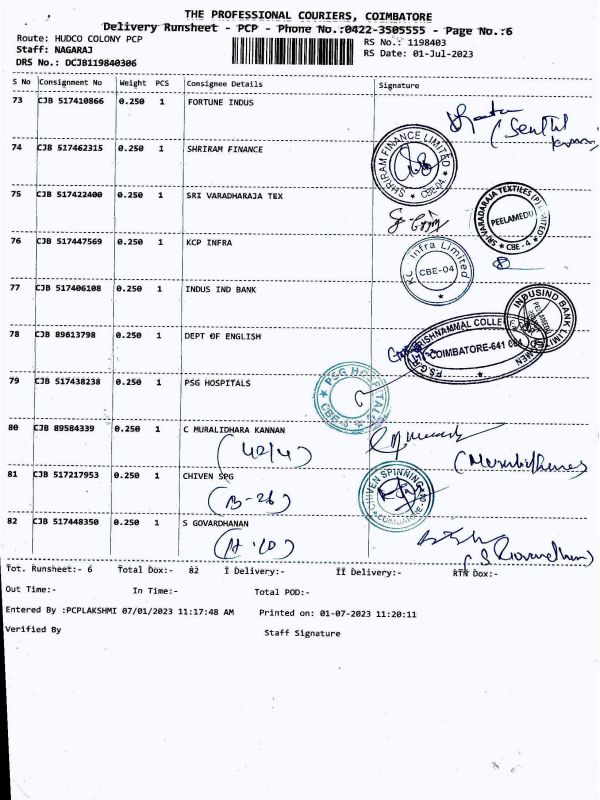 THE PROFESSIONAL COURIERS, COIMBATORE
Delivery Runsheet - PCP - Phone No.:0422-3505555 - Page No.:6
Route: HUDCO COLONY PCP
RS No.: 1198403
Staff: NAGARAJ
RS Date: 01-Jul-2023
DRS No.: DCJB119840306
S No Consignment No Weight PCS Consignee Details Signature
73 CJB 517410866 0.250 1 FORTUNE INDUS
(Senthil
74 CJB 517462315 0.250 1 SHRIRAM FINANCE
SHRIRAM FINANCE LIMITED
★ CBE-04 ★
75 CJB 517422400 0.250 1 SRI VARADHARAJA TEX
SRI VARADARAJA TEXTILES (P) LIMITED
PEELAMEDU
★ CBE - 4 ★
76 CJB 517447569 0.250 1 KCP INFRA
Infra Limited
CBE-04
77 CJB 517406108 0.250 1 INDUS IND BANK
INDUSIND BANK LIMITED
78 CJB 89613798 0.250 1 DEPT OF ENGLISH
P.S.G.R. KRISHNAMMAL COLLEGE FOR WOMEN
COIMBATORE-641 004
79 CJB 517438238 0.250 1 PSG HOSPITALS
PSG HOSPITALS
80 CJB 89584339 0.250 1 C MURALIDHARA KANNAN
(42/4)
81 CJB 517217953 0.250 1 CHIVEN SPG
(B-26)
CHIVEN SPINNING
COIMBATORE
82 CJB 517448350 0.250 1 S GOVARDHANAN
Tot. Runsheet:- 6 Total Dox:- 82 I Delivery:- II Delivery:- RTN Dox:-
Out Time:- In Time:- Total POD:-
Entered By :PCPLAKSHMI 07/01/2023 11:17:48 AM Printed on: 01-07-2023 11:20:11
Verified By Staff Signature